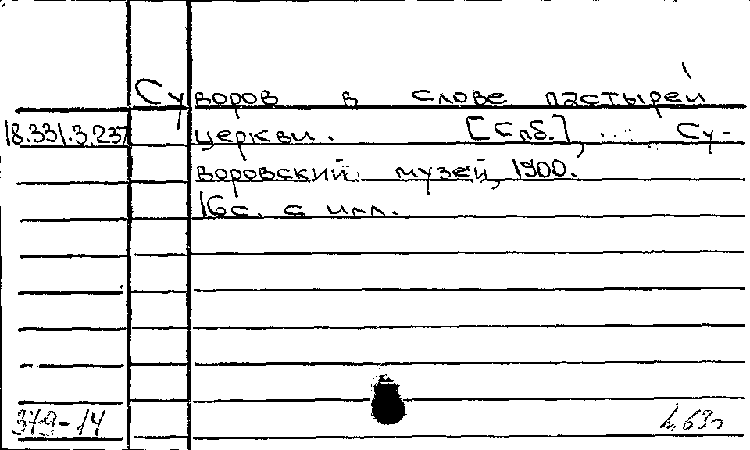 Суворов в слове пастырей
18.331.3.237 церкви. [Спб.], Су-
воровский музей, 1900.
16с. с илл.
379-14